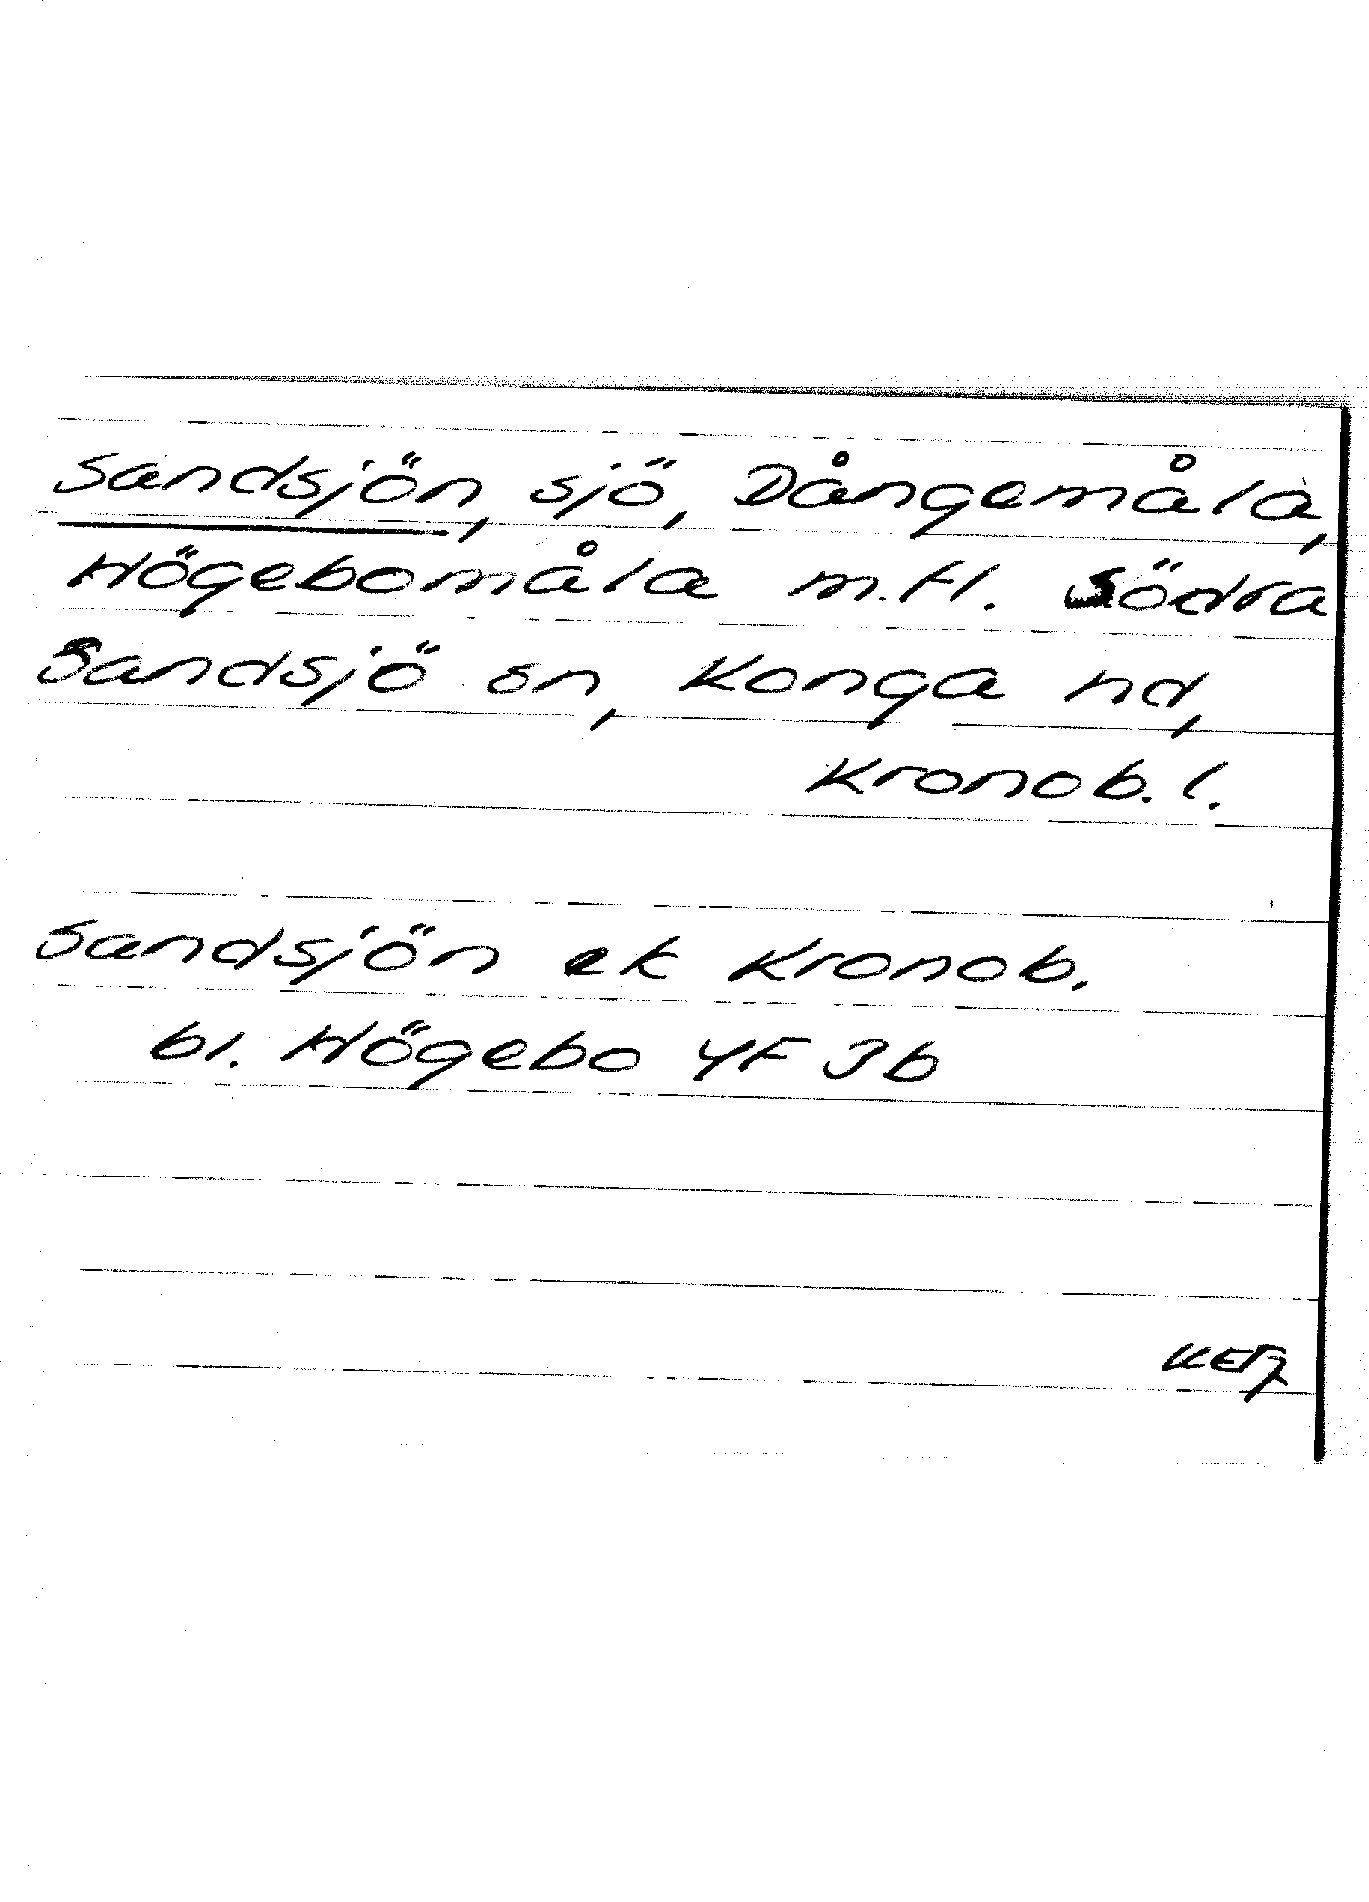 Sandsjön, sjö, Dångemåla,
Högebomåla m.fl. Södra
Sandsjö sn, Konga hd,
Kronob. l.
Sandsjön ek Kronob.
bl. Högebo 4F 3b